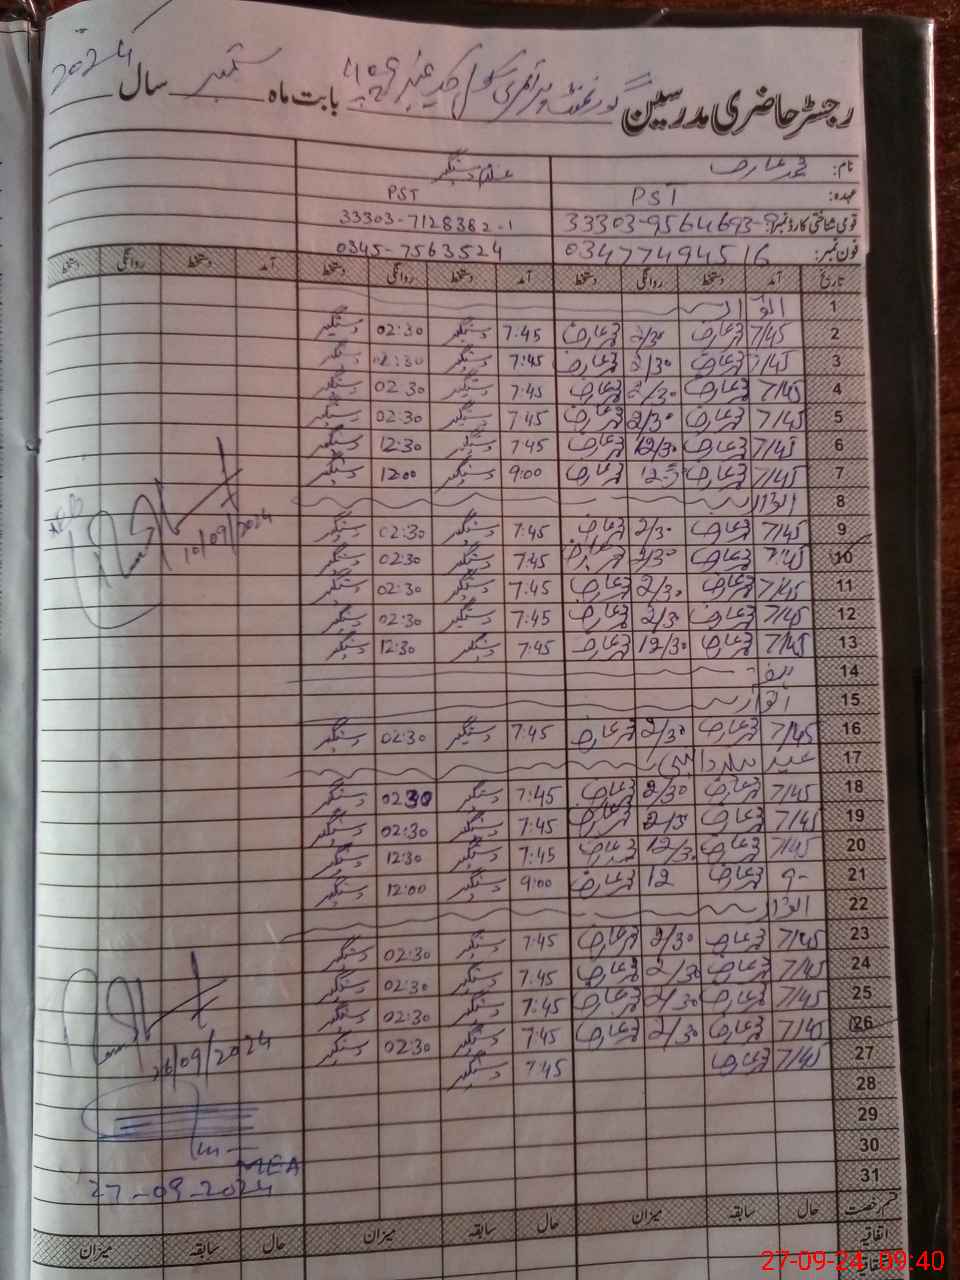 رجسٹر حاضری مدرسین گورنمنٹ پرائمری سکول چک نمبر بابت ماہ ستمبر سال 2024
نام: محمد عارف غلام دستگیر
عہدہ: PST PST
قومی شناختی کارڈ نمبر: 33303-9564693- 33303-7128382-1
فون نمبر: 03477494516 0345-7563524
تاریخ آمد دستخط روانگی دستخط آمد دستخط روانگی دستخط آمد دستخط روانگی دستخط
1 اتوار
2 7/45 محمد عارف 2/30 محمد عارف 7:45 دستگیر 02:30 دستگیر
3 7/45 محمد عارف 2/30 محمد عارف 7:45 دستگیر 02:30 دستگیر
4 7/45 محمد عارف 2/30 محمد عارف 7:45 دستگیر 02:30 دستگیر
5 7/45 محمد عارف 2/30 محمد عارف 7:45 دستگیر 02:30 دستگیر
6 7/45 محمد عارف 12/30 محمد عارف 7:45 دستگیر 12:30 دستگیر
7 7/45 محمد عارف محمد عارف 9:00 دستگیر 12:00 دستگیر
8 اتوار
9 7/45 محمد عارف 2/30 محمد عارف 7:45 دستگیر 02:30 دستگیر
10 7:45 محمد عارف 2/30 محمد عارف 7:45 دستگیر 02:30 دستگیر
10/09/2024
11 7/45 محمد عارف 2/30 محمد عارف 7:45 دستگیر 02:30 دستگیر
12 7/45 محمد عارف 2/30 محمد عارف 7:45 دستگیر 02:30 دستگیر
13 7/45 محمد عارف 12/30 محمد عارف 7:45 دستگیر 12:30 دستگیر
14 ہفتہ
15 اتوار
16 7/45 محمد عارف 2/30 محمد عارف 7:45 دستگیر 02:30 دستگیر
17 عید میلاد النبی
18 7/45 محمد عارف 2/30 محمد عارف 7:45 دستگیر 02:30 دستگیر
19 7/45 محمد عارف 2/30 محمد عارف 7:45 دستگیر 02:30 دستگیر
20 7/45 محمد عارف 12/30 محمد عارف 7:45 دستگیر 12:30 دستگیر
21 محمد عارف 12 محمد عارف 9:00 دستگیر 12:00 دستگیر
22 اتوار
23 7/45 محمد عارف 2/30 محمد عارف 7:45 دستگیر 02:30 دستگیر
24 7/45 محمد عارف 2/30 محمد عارف 7:45 دستگیر 02:30 دستگیر
25 7/45 محمد عارف 2/30 محمد عارف 7:45 دستگیر 02:30 دستگیر
26 7/45 محمد عارف 2/30 محمد عارف 7:45 دستگیر 02:30 دستگیر
26/09/2024
27 7/45 محمد عارف 7:45 دستگیر
28
29
30
MEA
31
27-09-2024
قسم رخصت حال سابقہ میزان حال سابقہ میزان حال سابقہ میزان
اتفاقیہ
27-09-24 09:40